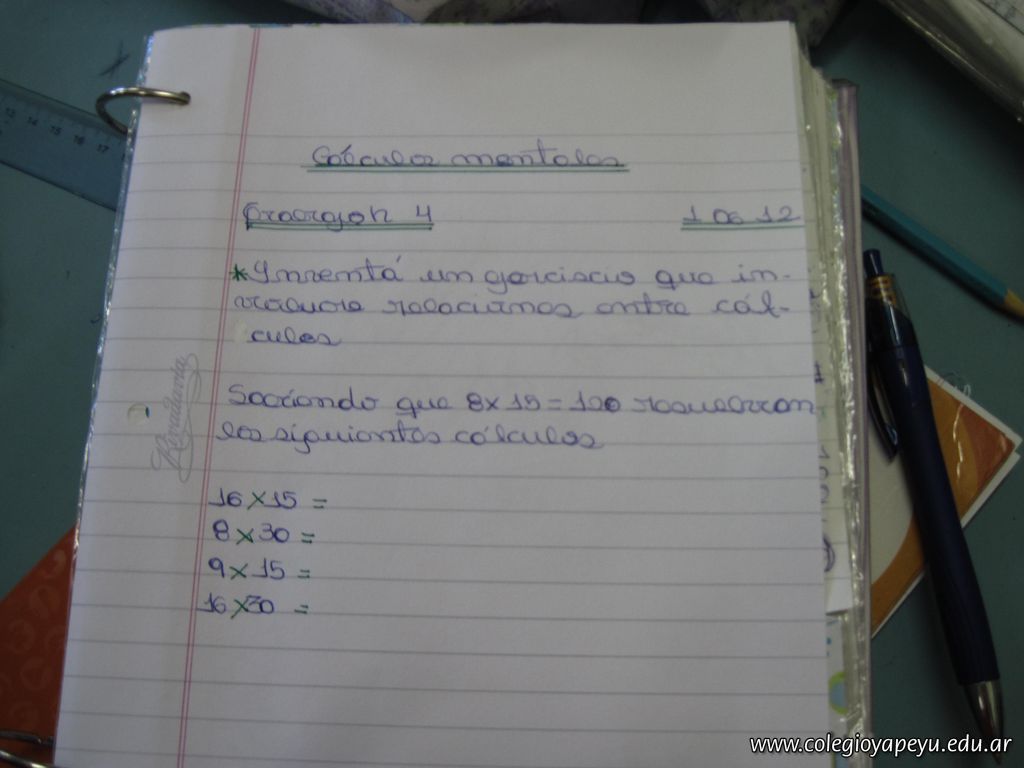 Cálculos mentales
Occorgoh 4
1 De 12
*Inventá un ejerciscio que in-
volucre relaciones entre cál-
culos
Sabiendo que 8x15=120 resuelvan
los siguientes cálculos
Rivadavia
16x15=
8x30=
9x15=
16x30=
13 14 15 16 17
www.colegioyapeyu.edu.ar